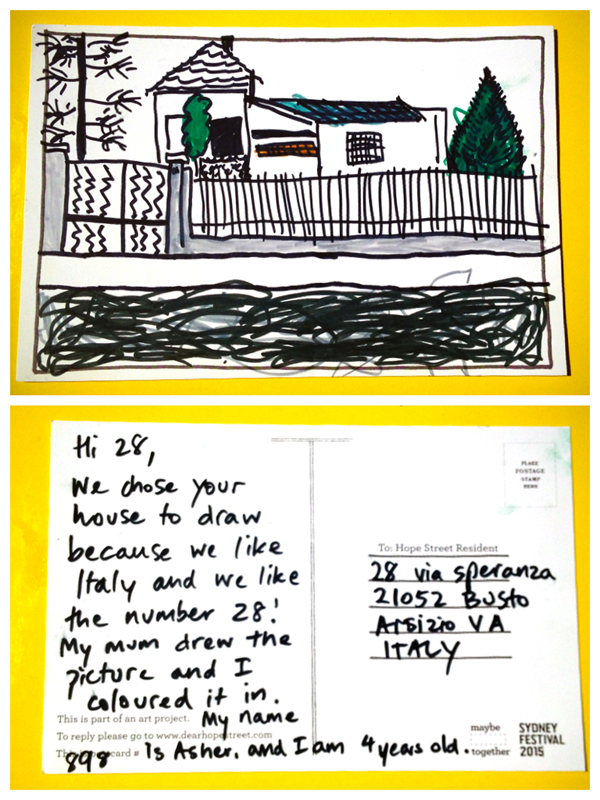 Hi 28,
We chose your
house to draw
because we like
Italy and we like
the number 28!
My mum drew the
picture and I
coloured it in.
My name
is Asher. and I am 4 years old.
This is part of an art project.
To reply please go to www.dearhopestreet.com
This is postcard #
898
PLACE
POSTAGE
STAMP
HERE
To: Hope Street Resident
28 via speranza
21052 Busto
Arsizio VA
ITALY
maybe
together
SYDNEY
FESTIVAL
2015